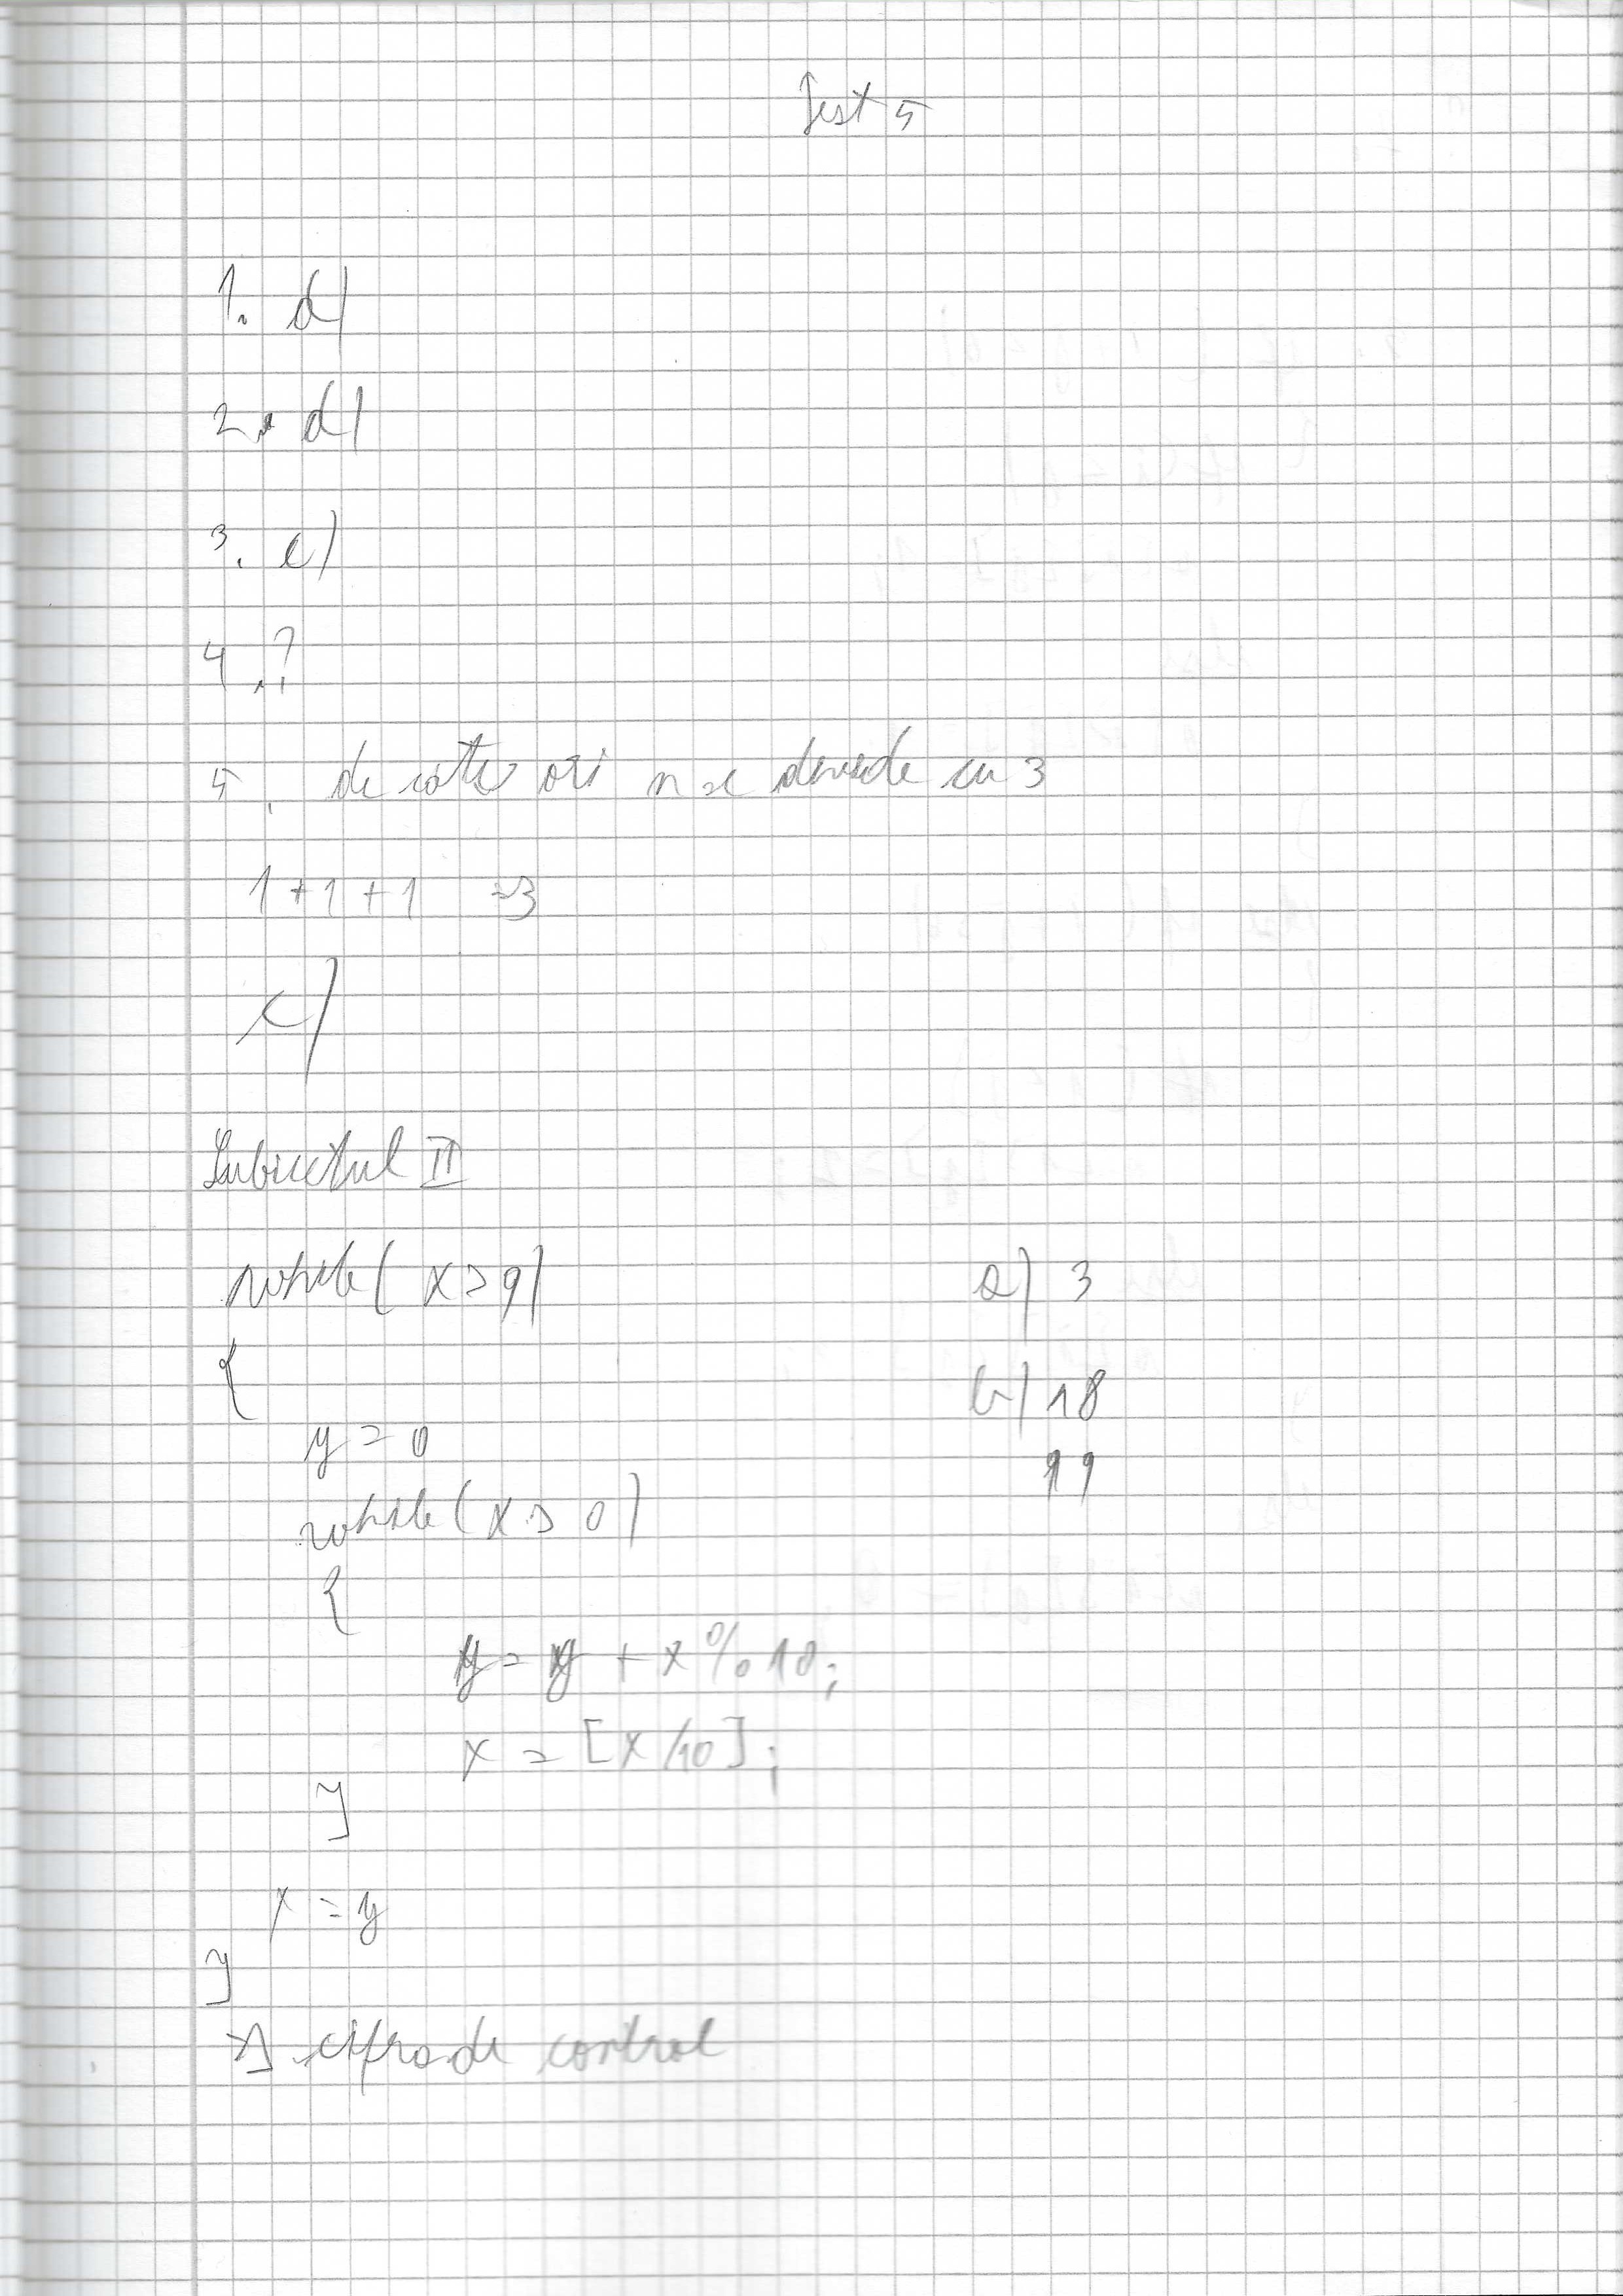 Test 5
1. d)
2. d)
3. c)
4. ?
5. de câte ori n se devide cu 3
1+1+1 =3
c)
Subiectul II
while( x>9)
{
y=0
while(x>0)
{
y=y+x%10;
x=[x/10];
}
x=y
}
a) 3
b) 18
99
→ cifra de control